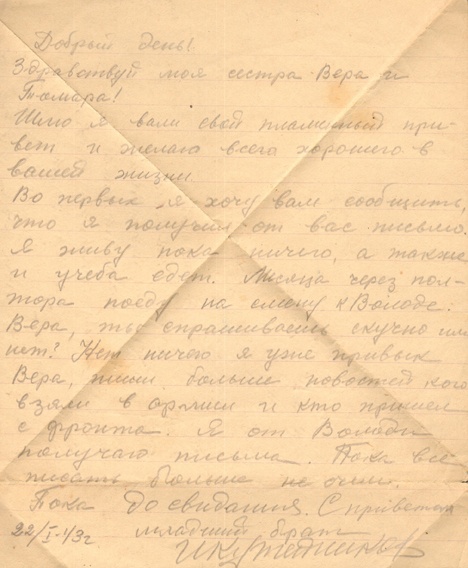 Добрый день!
Здравствуй моя сестра Вера и
Тамара!
Шлю я вам свой пламеный при-
вет и желаю всего хорошего в
вашей жизни
Во первых я хочу вам сообщить,
что я получил от вас письмо.
Я живу пока ничего, а также
и учеба едет. Месяца через пол-
тора поеду на смену к Володе.
Вера, ты спрашиваешь скучно или
нет? Нет ничего я уже привык
Вера, пиши больше новостей кого
взяли в армию и кто пришел
с фронта. Я от Володи
получаю письма. Пока всё
писать больше не
Пока до свидания. С приветом
22/I-43г младший брат